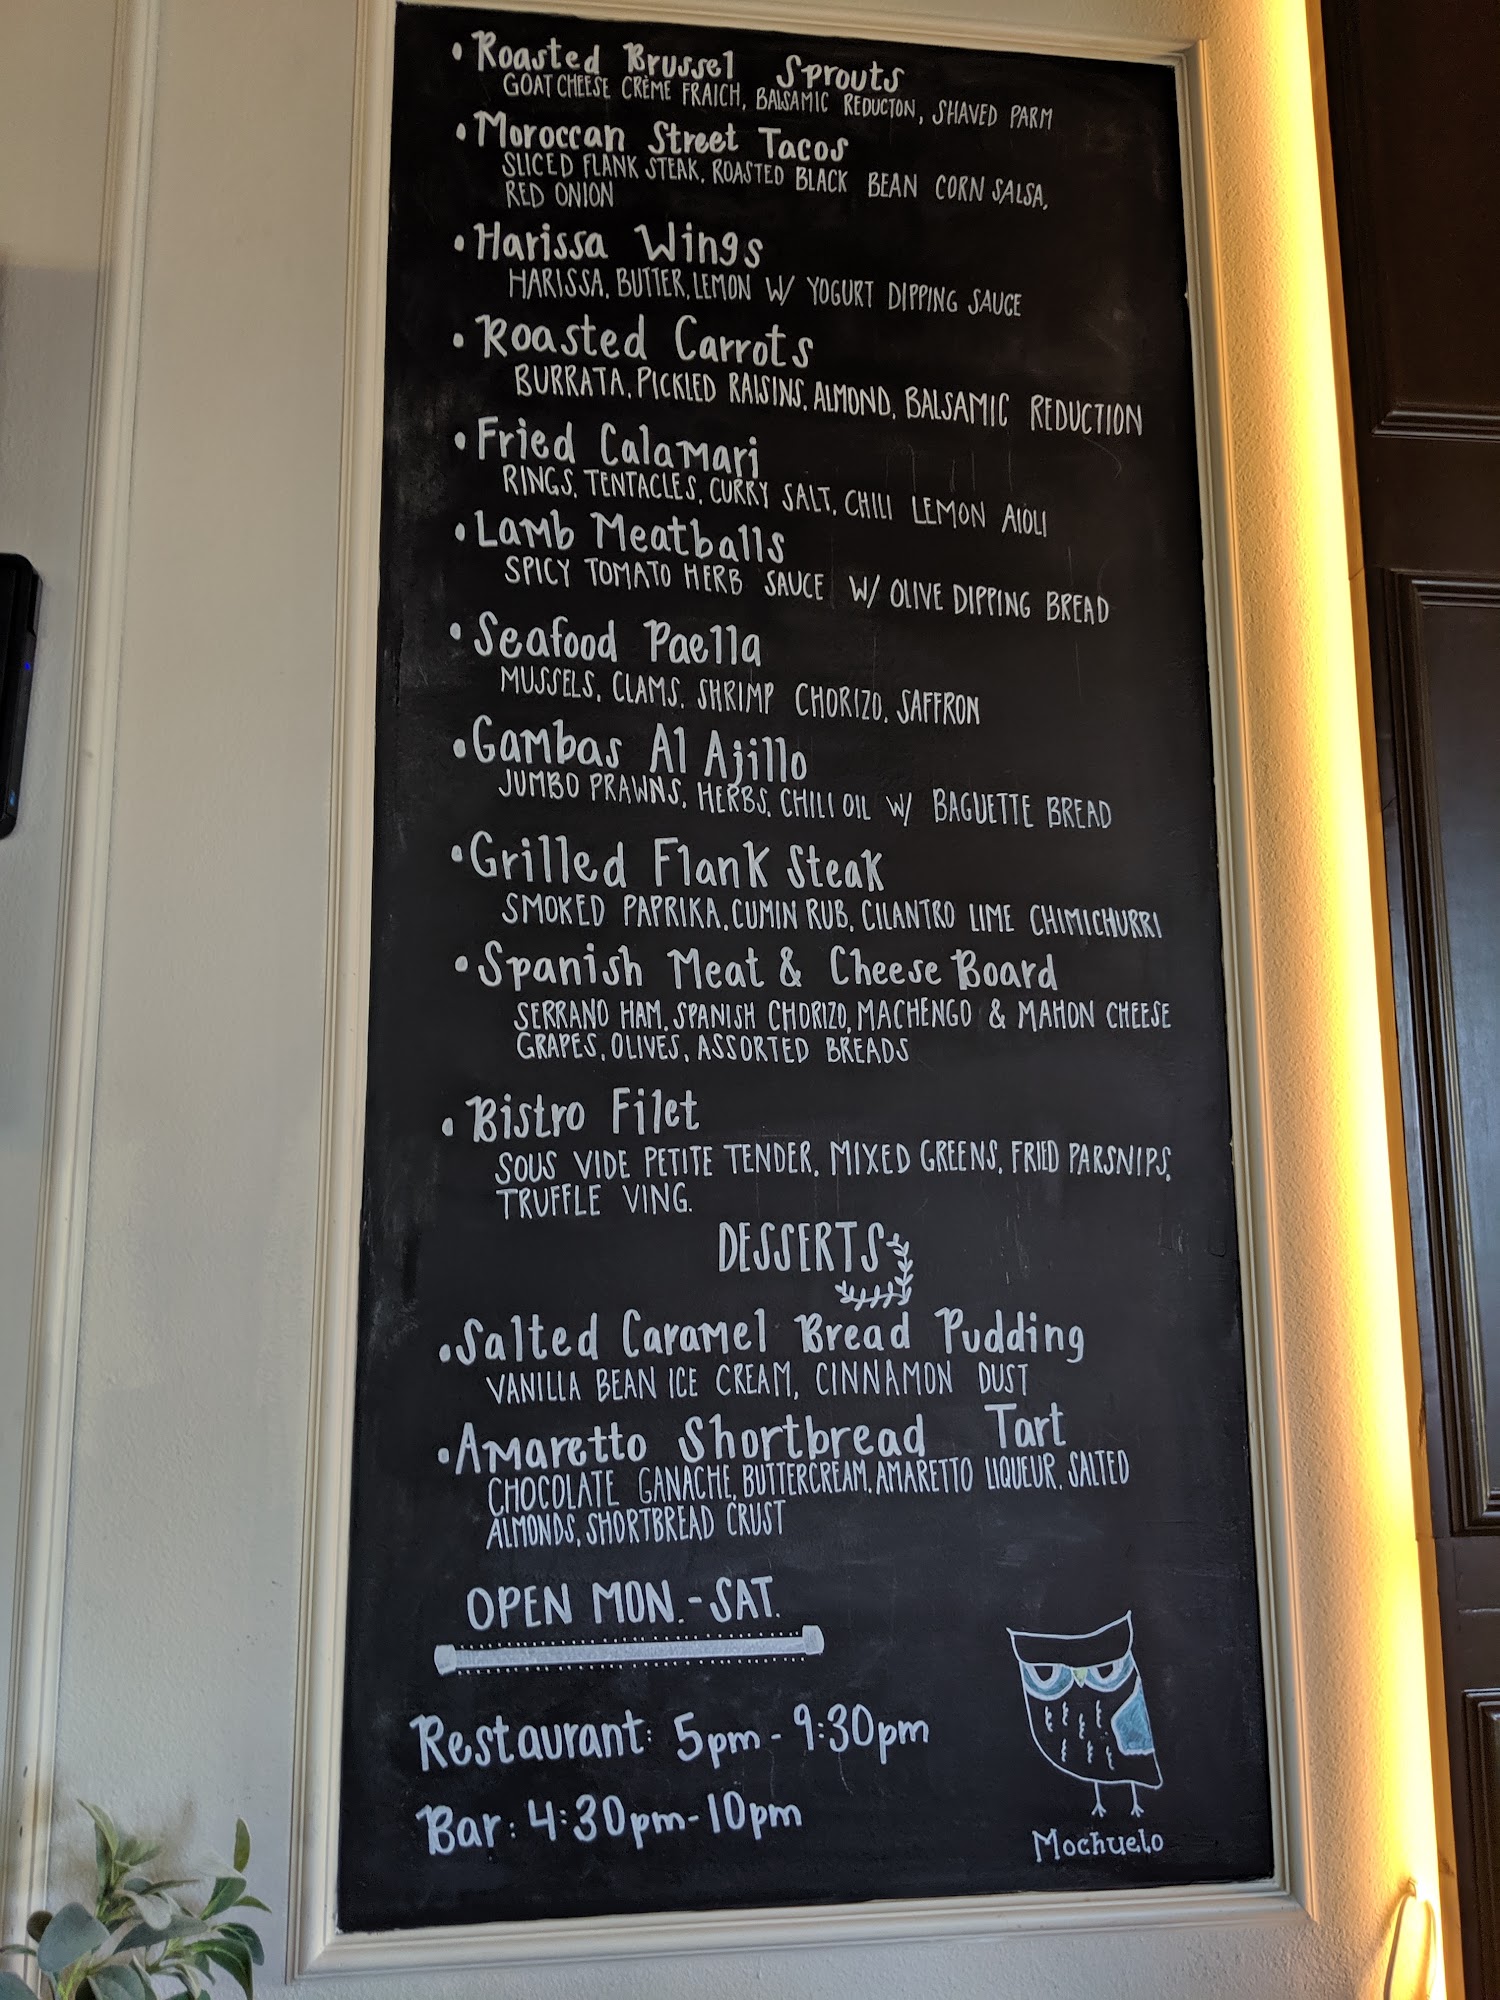 • Roasted Brussel Sprouts
GOAT CHEESE CRÈME FRAICH, BALSAMIC REDUCTON, SHAVED PARM
• Moroccan Street Tacos
SLICED FLANK STEAK, ROASTED BLACK BEAN CORN SALSA,
RED ONION
• Harissa Wings
HARISSA, BUTTER, LEMON W/ YOGURT DIPPING SAUCE
• Roasted Carrots
BURRATA, PICKLED RAISINS, ALMOND, BALSAMIC REDUCTION
• Fried Calamari
RINGS, TENTACLES, CURRY SALT, CHILI LEMON AIOLI
• Lamb Meatballs
SPICY TOMATO HERB SAUCE W/ OLIVE DIPPING BREAD
• Seafood Paella
MUSSELS, CLAMS, SHRIMP CHORIZO, SAFFRON
• Gambas Al Ajillo
JUMBO PRAWNS, HERBS, CHILI OIL W/ BAGUETTE BREAD
• Grilled Flank Steak
SMOKED PAPRIKA, CUMIN RUB, CILANTRO LIME CHIMICHURRI
• Spanish Meat & Cheese Board
SERRANO HAM, SPANISH CHORIZO, MACHENGO & MAHON CHEESE
GRAPES, OLIVES, ASSORTED BREADS
• Bistro Filet
SOUS VIDE PETITE TENDER, MIXED GREENS, FRIED PARSNIPS,
TRUFFLE VING.
DESSERTS
• Salted Caramel Bread Pudding
VANILLA BEAN ICE CREAM, CINNAMON DUST
• Amaretto Shortbread Tart
CHOCOLATE GANACHE, BUTTERCREAM, AMARETTO LIQUEUR, SALTED
ALMONDS, SHORTBREAD CRUST
OPEN MON.-SAT.
Restaurant: 5pm-9:30pm
Bar: 4:30pm-10pm
Mochuelo